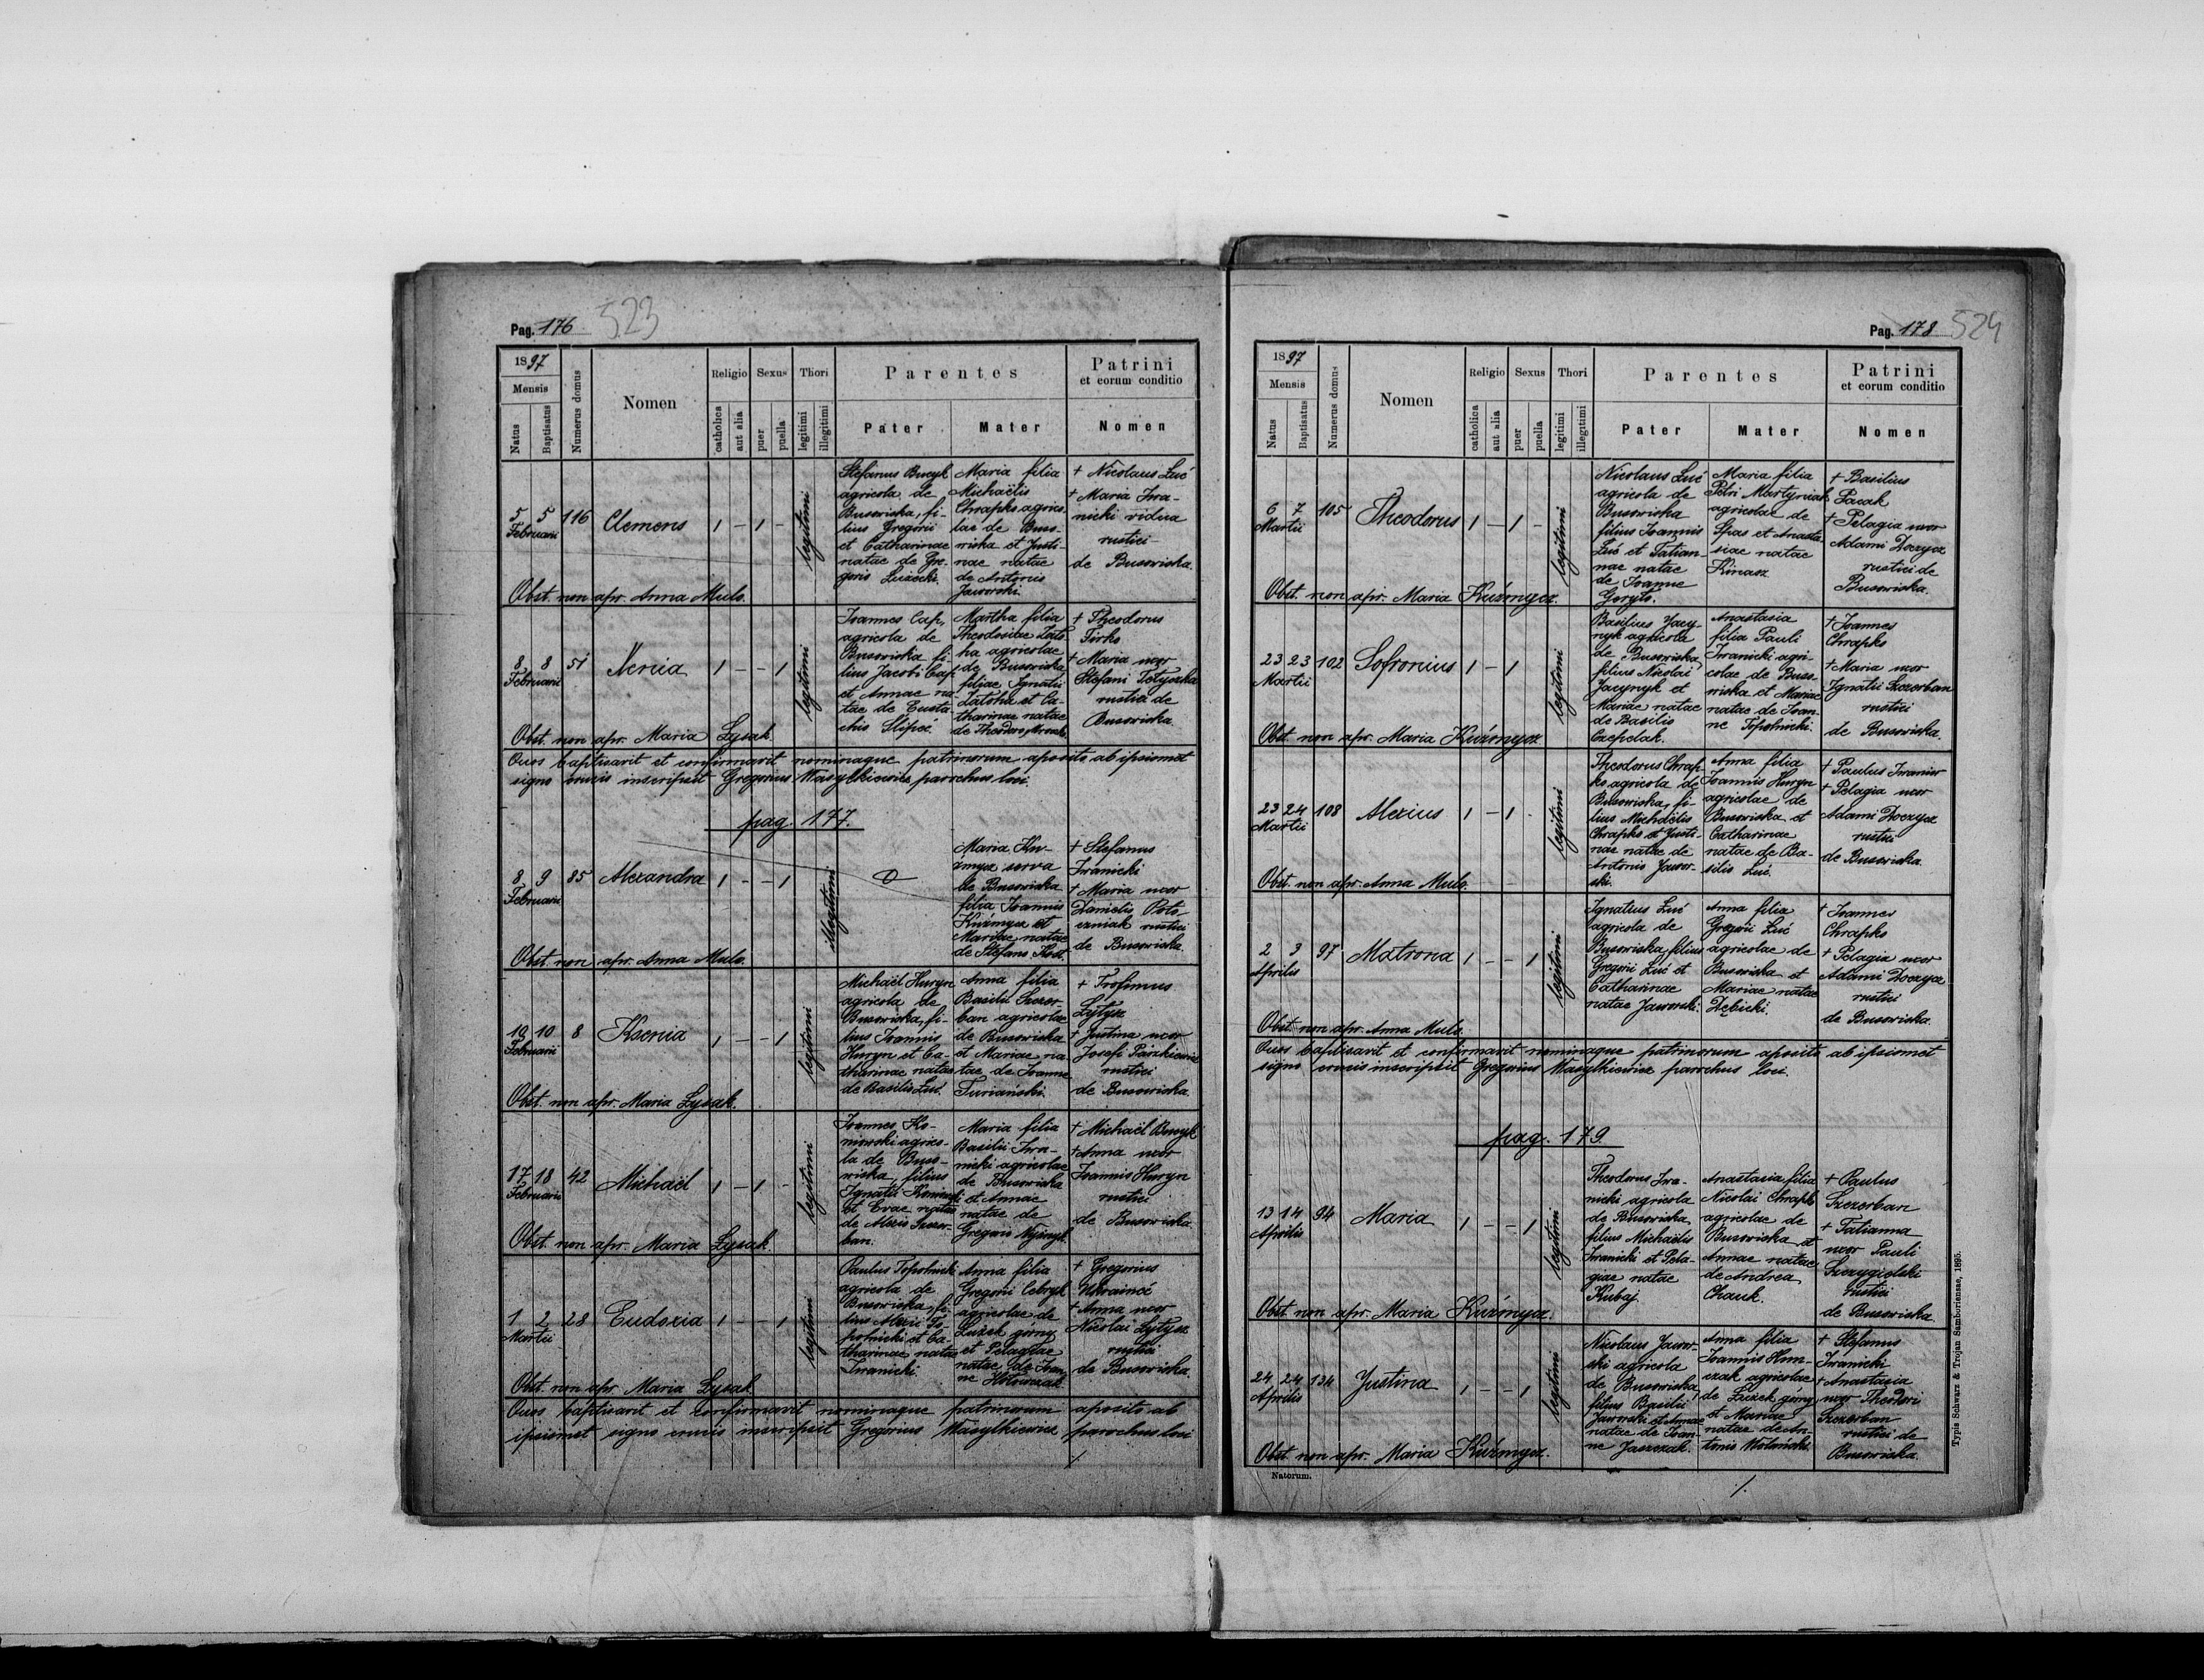 Pag. 176 523
1897
Mensis
Natus
Baptisatus
Numerus domus
Nomen
Religio
catholica
aut alia
Sexus
puer
puella
Thori
legitimi
illegitimi
Parentes
Pater
Mater
Patrini
et eorum conditio
Nomen
5 5 116 Clemens 1 – 1 – legitimi
Februarii
Stefanus Bucyk
agricola de
Busowiska, fi-
lius Gregorii
et Catharinae
natae de Gre-
gorio Łużecki.
Maria filia
Michaëlis
Chrapko agrico-
lae de Buso-
wiska et Justi-
nae natae
de Antonio
Jaworski.
+ Nicolaus Luć
+ Maria Iwa-
nicki vidua
rustici
de Busowiska.
Obst. non apr. Anna Mulo.
8 8 51 Xenia 1 – – 1 legitimi
Februarii
Ioannes Cap,
agricola de
Busowiska fi-
lius Jacobi Cap
et Annae na-
tae de Eusta-
chio Slipeć.
Martha filia
Theodosiae
agricolae
de Busowiska
filiae Ignatii
et Ca-
tharinae natae
de Theodoro
+ Theodorus
Firko
+ Maria uxor
Stefani Tetyczka
rustici de
Busowiska.
Obst. non apr. Maria Łysak.
Quos baptisavit et confirmavit nominaque patrinorum aposito ab ipsismet
signo crucis inscripsit Gregorius Wasylkiewicz parochus loci.
pag. 177.
8 9 85 Alexandra 1 – – 1 illegitimi
Februarii
Maria Ku-
źmycz serva
de Busowiska
filia Ioannis
Kuźmycz et
Mariae natae
de Stefano Kost.
+ Stefanus
Iwanicki
+ Maria uxor
Danielis Poto-
czniak rustici
de Busowiska.
Obst. non apr. Anna Mulo.
10 10 8 Ksenia 1 – – 1 legitimi
Februarii
Michaël Huryn
agricola de
Busowiska, fi-
lius Ioannis
Huryn et Ca-
tharinae natae
de Basilio Luć.
Anna filia
Basilii Szczer-
ban agricolae
de Busowiska
et Mariae na-
tae de Ioanne
Turiański.
+ Trofimus
Łytysz
+ Justina uxor
Josefi Paszkiewicz
rustici
de Busowiska.
Obst. non apr. Maria Łysak.
17 18 42 Michaël 1 – 1 – legitimi
Februarii
Ioannes Ko-
mowski agrico-
la de Buso-
wiska, filius
Ignatii Komowski
et Evae natae
de Alexio Szczer-
ban.
Maria filia
Basilii Iwa-
nicki agricolae
de Busowiska
et Annae
natae de
Gregorio
+ Michaël Bucyk
+ Anna uxor
Ioannis Huryn
rustici
de Busowiska.
Obst. non apr. Maria Łysak.
1 2 28 Eudoxia 1 – – 1 legitimi
Martii
Paulus Topolnicki
agricola de
Busowiska, fi-
lius Alexii To-
polnicki et Ca-
tharinae natae
Iwanicki.
Anna filia
Gregorii Cebryk
agricolae de
Łużek górny
et Pelagiae
natae de Ioan-
ne
+ Gregorius
Ukraineć
+ Anna uxor
Nicolai Łytysz
rustici
de Busowiska.
Obst. non apr. Maria Łysak
Quos baptisavit et confirmavit nominaque patrinorum aposito ab
ipsismet signo crucis inscripsit Gregorius Wasylkiewicz parochus loci
Pag. 178 524
1897
Mensis
Natus
Baptisatus
Numerus domus
Nomen
Religio
catholica
aut alia
Sexus
puer
puella
Thori
legitimi
illegitimi
Parentes
Pater
Mater
Patrini
et eorum conditio
Nomen
6 7 105 Theodorus 1 – 1 – legitimi
Martii
Nicolaus Luć
agricola de
Busowiska
filius Ioannis
Luć et Tatian-
nae natae
de Ioanne
Goryło.
Maria filia
Petri Martyniak
agricolae de
Spas et Anasta-
siae natae
Kinasz.
+ Basilius
Pacak
+ Pelagia uxor
Adami Doczycz
rustici de
Busowiska.
Obst. non apr. Maria Kuźmycz.
23 23 102 Sofronius 1 – 1 legitimi
Martii
Basilius Jacy-
nyk agricola
de Busowiska,
filius Nicolai
Jacynyk et
Mariae natae
de Basilio
Czepelak.
Anastasia
filia Pauli
Iwanicki agri-
colae de Buso-
wiska et Mariae
natae de Ioan-
ne Topolnicki.
+ Ioannes
Chrapko
+ Maria uxor
Ignatii Szczerban
rustici
de Busowiska.
Obst. non apr. Maria Kuźmycz
23 24 108 Alexius 1 – 1 – legitimi
Martii
Theodorus Chrap-
ko agricola de
Busowiska, fi-
lius Michaëlis
Chrapko et Justi-
nae natae de
Antonio Jawor-
ski.
Anna filia
Ioannis Huryn
agricolae de
Busowiska et
Catharinae
natae de Ba-
silio Luć.
+ Paulus Iwaniw
+ Pelagia uxor
Adami Doczycz
rustici
de Busowiska.
Obst. non apr. Anna Mulo.
2 3 97 Matrona 1 – – 1 legitimi
Aprilis
Ignatius Luć
agricola de
Busowiska, filius
Gregorii Luć et
Catharinae
natae Jaworski.
Anna filia
Gregorii Luć
agricolae de
Busowiska et
Mariae natae
Dębicki.
+ Ioannes
Chrapko
+ Pelagia uxor
Adami Doczycz
rustici
de Busowiska.
Obst. non apr. Anna Mulo.
Quos baptisavit et confirmavit nominaque patrinorum aposito ab ipsismet
signo crucis inscripsit Gregorius Wasylkiewicz parochus loci.
pag. 179.
13 14 94 Maria 1 – – 1 legitimi
Aprilis
Theodorus Iwa-
nicki agricola
de Busowiska
filius Michaëlis
Iwanicki et Pela-
giae natae
Kubaj.
Anastasia filia
Nicolai Chrapko
agricolae de
Busowiska et
Annae natae
de Andrea
Chauk.
+ Paulus
Szczerban
+ Tatianna
uxor Pauli
Szczygielski
rustici
de Busowiska.
Obst. non apr. Maria Kuźmycz.
24 24 134 Justina 1 – – 1 legitimi
Aprilis
Nicolaus Jawor-
ski agricola
de Busowiska,
filius Basilii
Jaworski et Annae
natae de Ioan-
ne Jaszczak.
Anna filia
Ioannis Hum-
czak agricolae
de Łużek górny
et Mariae
natae de An-
tonio Wołański.
+ Stefanus
Iwanicki
+ Anastasia
uxor Theodori
Szczerban
rustici de
Busowiska.
Obst. non apr. Maria Kuźmycz.
Natorum.
Typis Schwarz & Trojan Samboriensae, 1895.